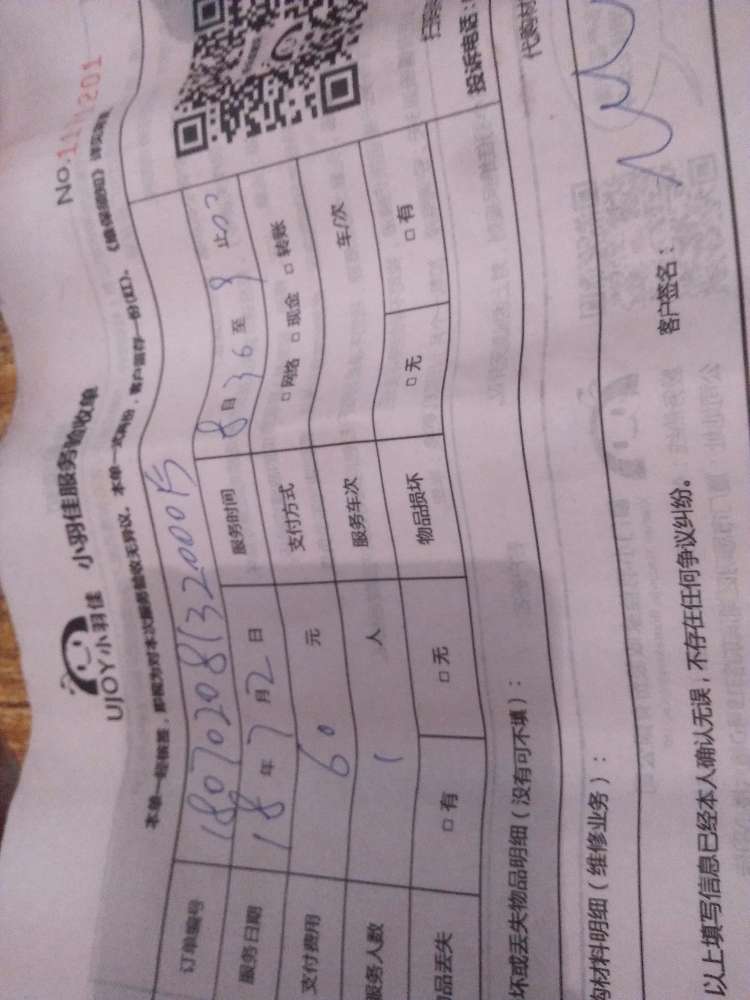 No.
UJOY小羽佳 小羽佳服务验收单
本单一经核签，即视为对本次服务验收无异议。本单一式两份，客户留存一份(红)。《维保须知》详见背面
订单编号
服务日期 18 年 7 月 2 日 服务时间
支付费用 60 元 支付方式 □网络 □现金 □转账
服务人数 1 人 服务车次 车/次
品丢失 □有 □无 物品损坏 □无 □有
坏或丢失物品明细（没有可不填）：
投诉电话：
购材料明细（维修业务）：
以上填写信息已经本人确认无误，不存在任何争议纠纷。
客户签名：